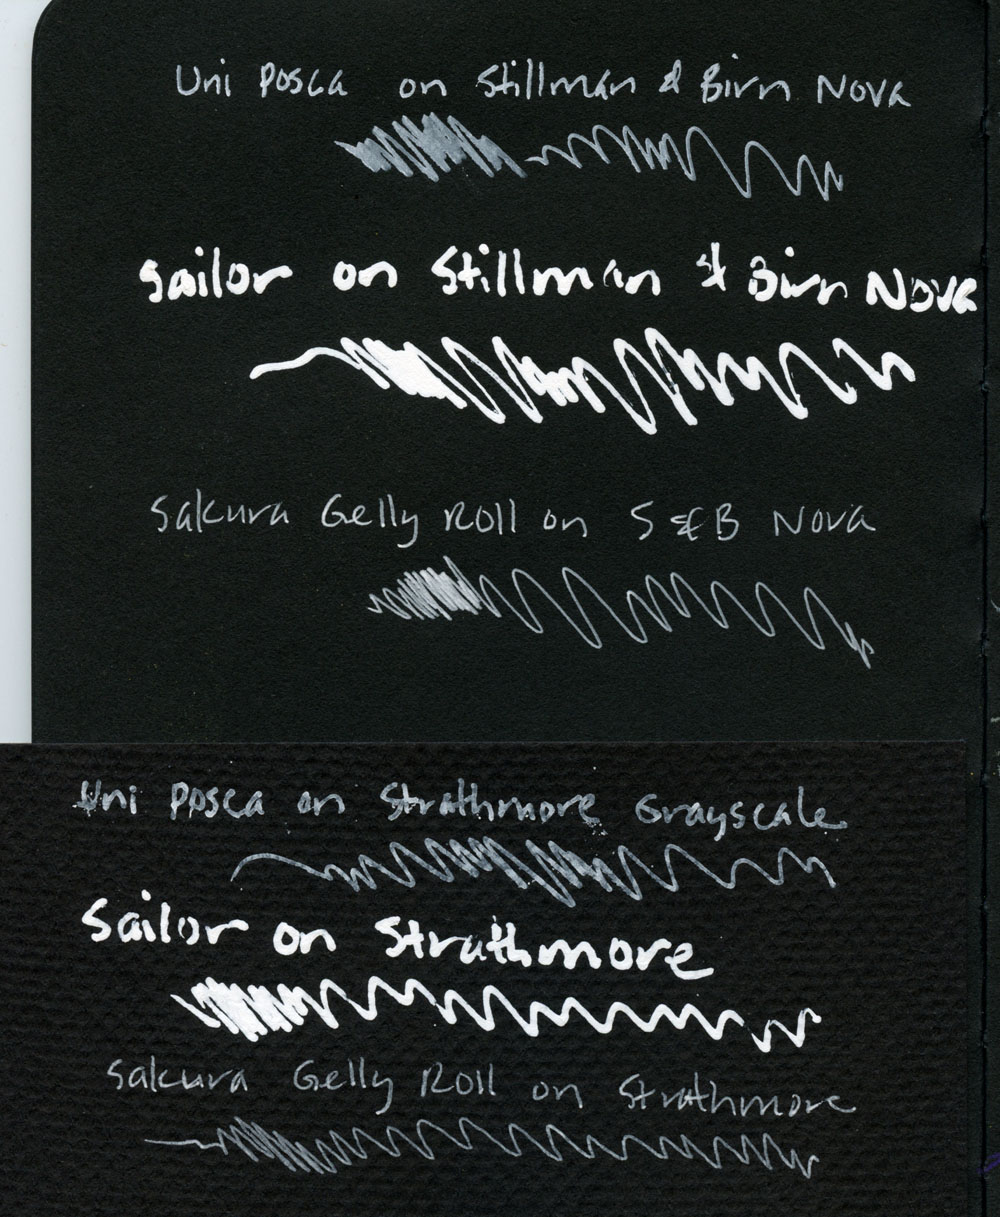 Uni Posca on Stillman & Birn Nova
Sailor on Stillman & Birn Nova
Sakura Gelly Roll on S&B Nova
Uni Posca on Strathmore Grayscale
Sailor on Strathmore
Sakura Gelly Roll on Strathmore